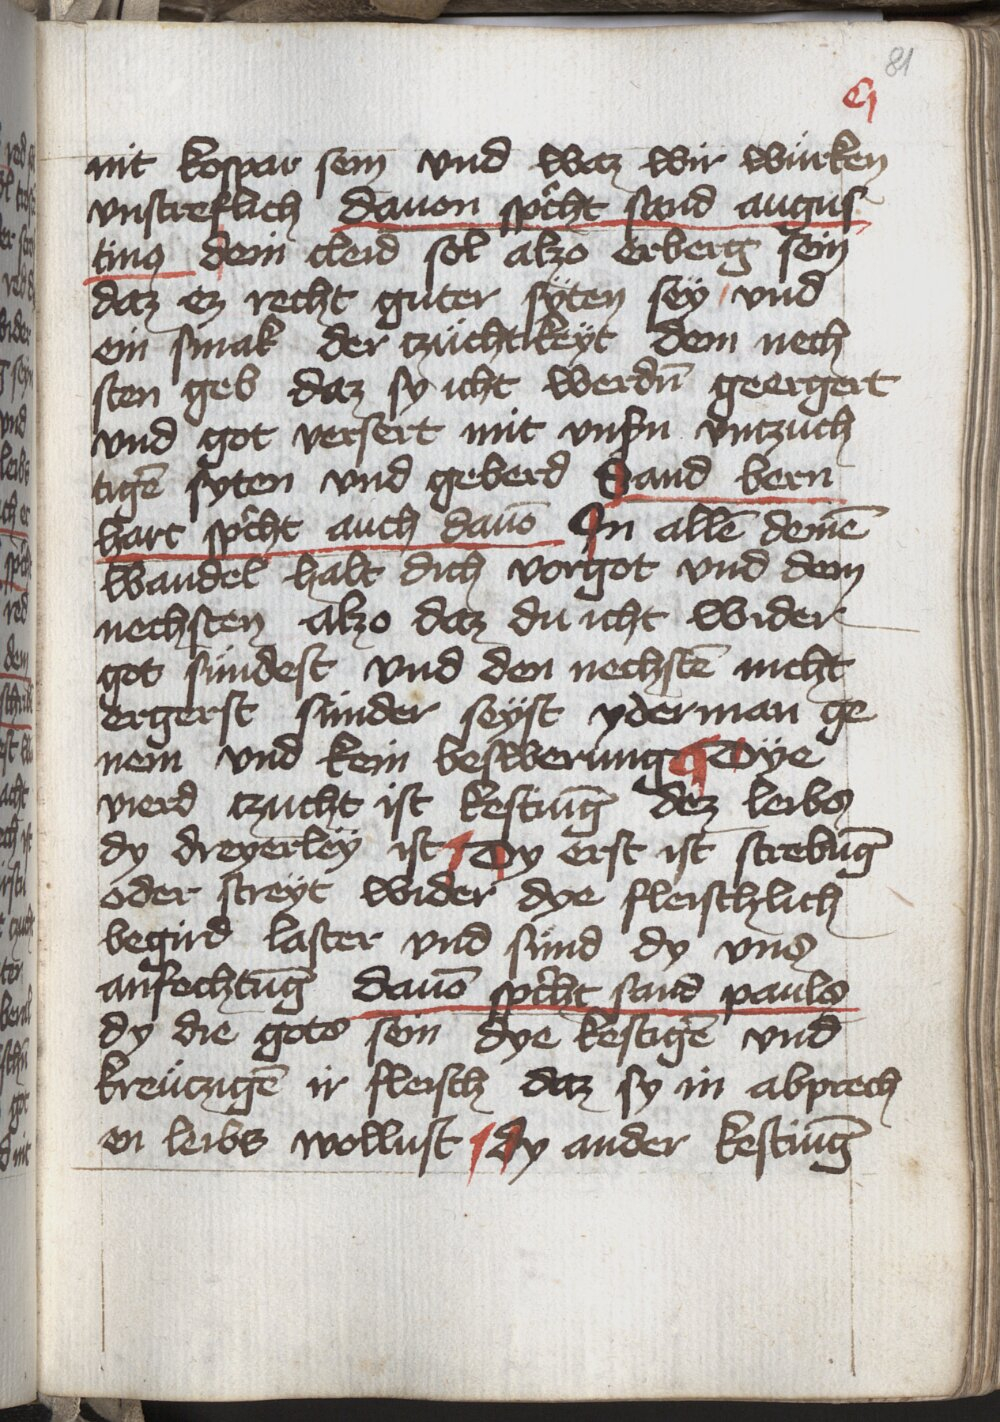 81
nit kospar sein vnd waz wir würken
vnstreflich dauon spͨht sand augus
tinus dein cleid sol alzo erberg sein
daz ez recht guter syten sey vnd
ein smak der tzüchtikeyt dem nech
sten geb daz sy icht werdn̄ geergert
vnd got versert mit vnsn̄ vntzuch
tigē syten vnd geberd Sand bern
hart spͨht auch dauō In allē deinē
wandel halt dich vor got vnd dem
nechsten alzo daz du icht wider
got sündest vnd den nechstē nicht
ergerst sünder seyst yderman ge
nem vnd kein beswerung Dÿe
vierd tzucht ist kestiūg dez leibs
dy dreyerley ist Dy erst ist strebūg
oder streyt wider dye fleischlich
begird laster vnd sünd dy vns
anfechtūg dauō spͨht sand pauls
dy die gots sein dye kestigē vnd
kreützigē ir fleisch daz sy in abprech
en leibs wollust dy ander kestiūg